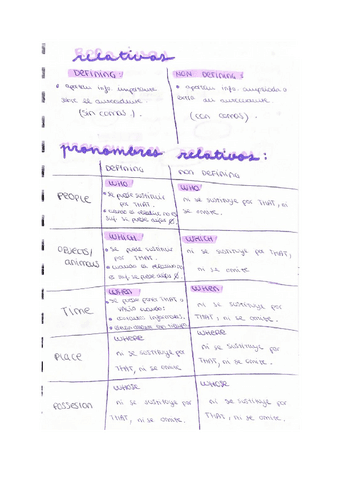 relativas
DEFINING:
• aportan info importante
sobre el antecedente.
(sin comas).
NON DEFINING:
• aportan info ampliada o
extra del antecedente.
(con comas).
pronombres relativos:
DEFINING
NON DEFINING
PEOPLE
WHO
• se puede sustituir
por THAT.
• cuando el relativo no es
suj. se puede omitir Ø.
WHO
ni se sustituye por THAT, ni
se omite.
OBJECTS/
animals
WHICH
• se puede sustituir
por THAT.
• cuando el relativo no
es suj. se puede omitir Ø.
WHICH
ni se sustituye por THAT,
ni se omite.
Time
WHEN
• se puede poner THAT o
WHEN
ni se sustituye por
THAT, ni se omite.
PLACE
WHERE
ni se sustituye por
THAT, ni se omite
WHERE
ni se sustituye por
THAT, ni se omite.
POSSESION
WHOSE
ni se sustituye por
THAT, ni se omite.
WHOSE
ni se sustituye por
THAT, ni se omite.